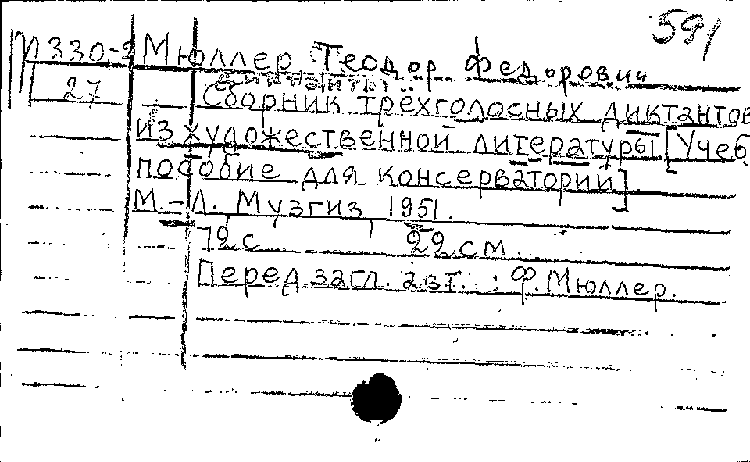 591
П 330-2 Мюллер Теодор Федорович
27 Сборник трёхголосных диктантов
из художественной литературы [Учеб
пособие для консерваторий]
М.-Л. Музгиз, 1951.
72 с. 22 см.
Перед загл. авт.: Ф. Мюллер.